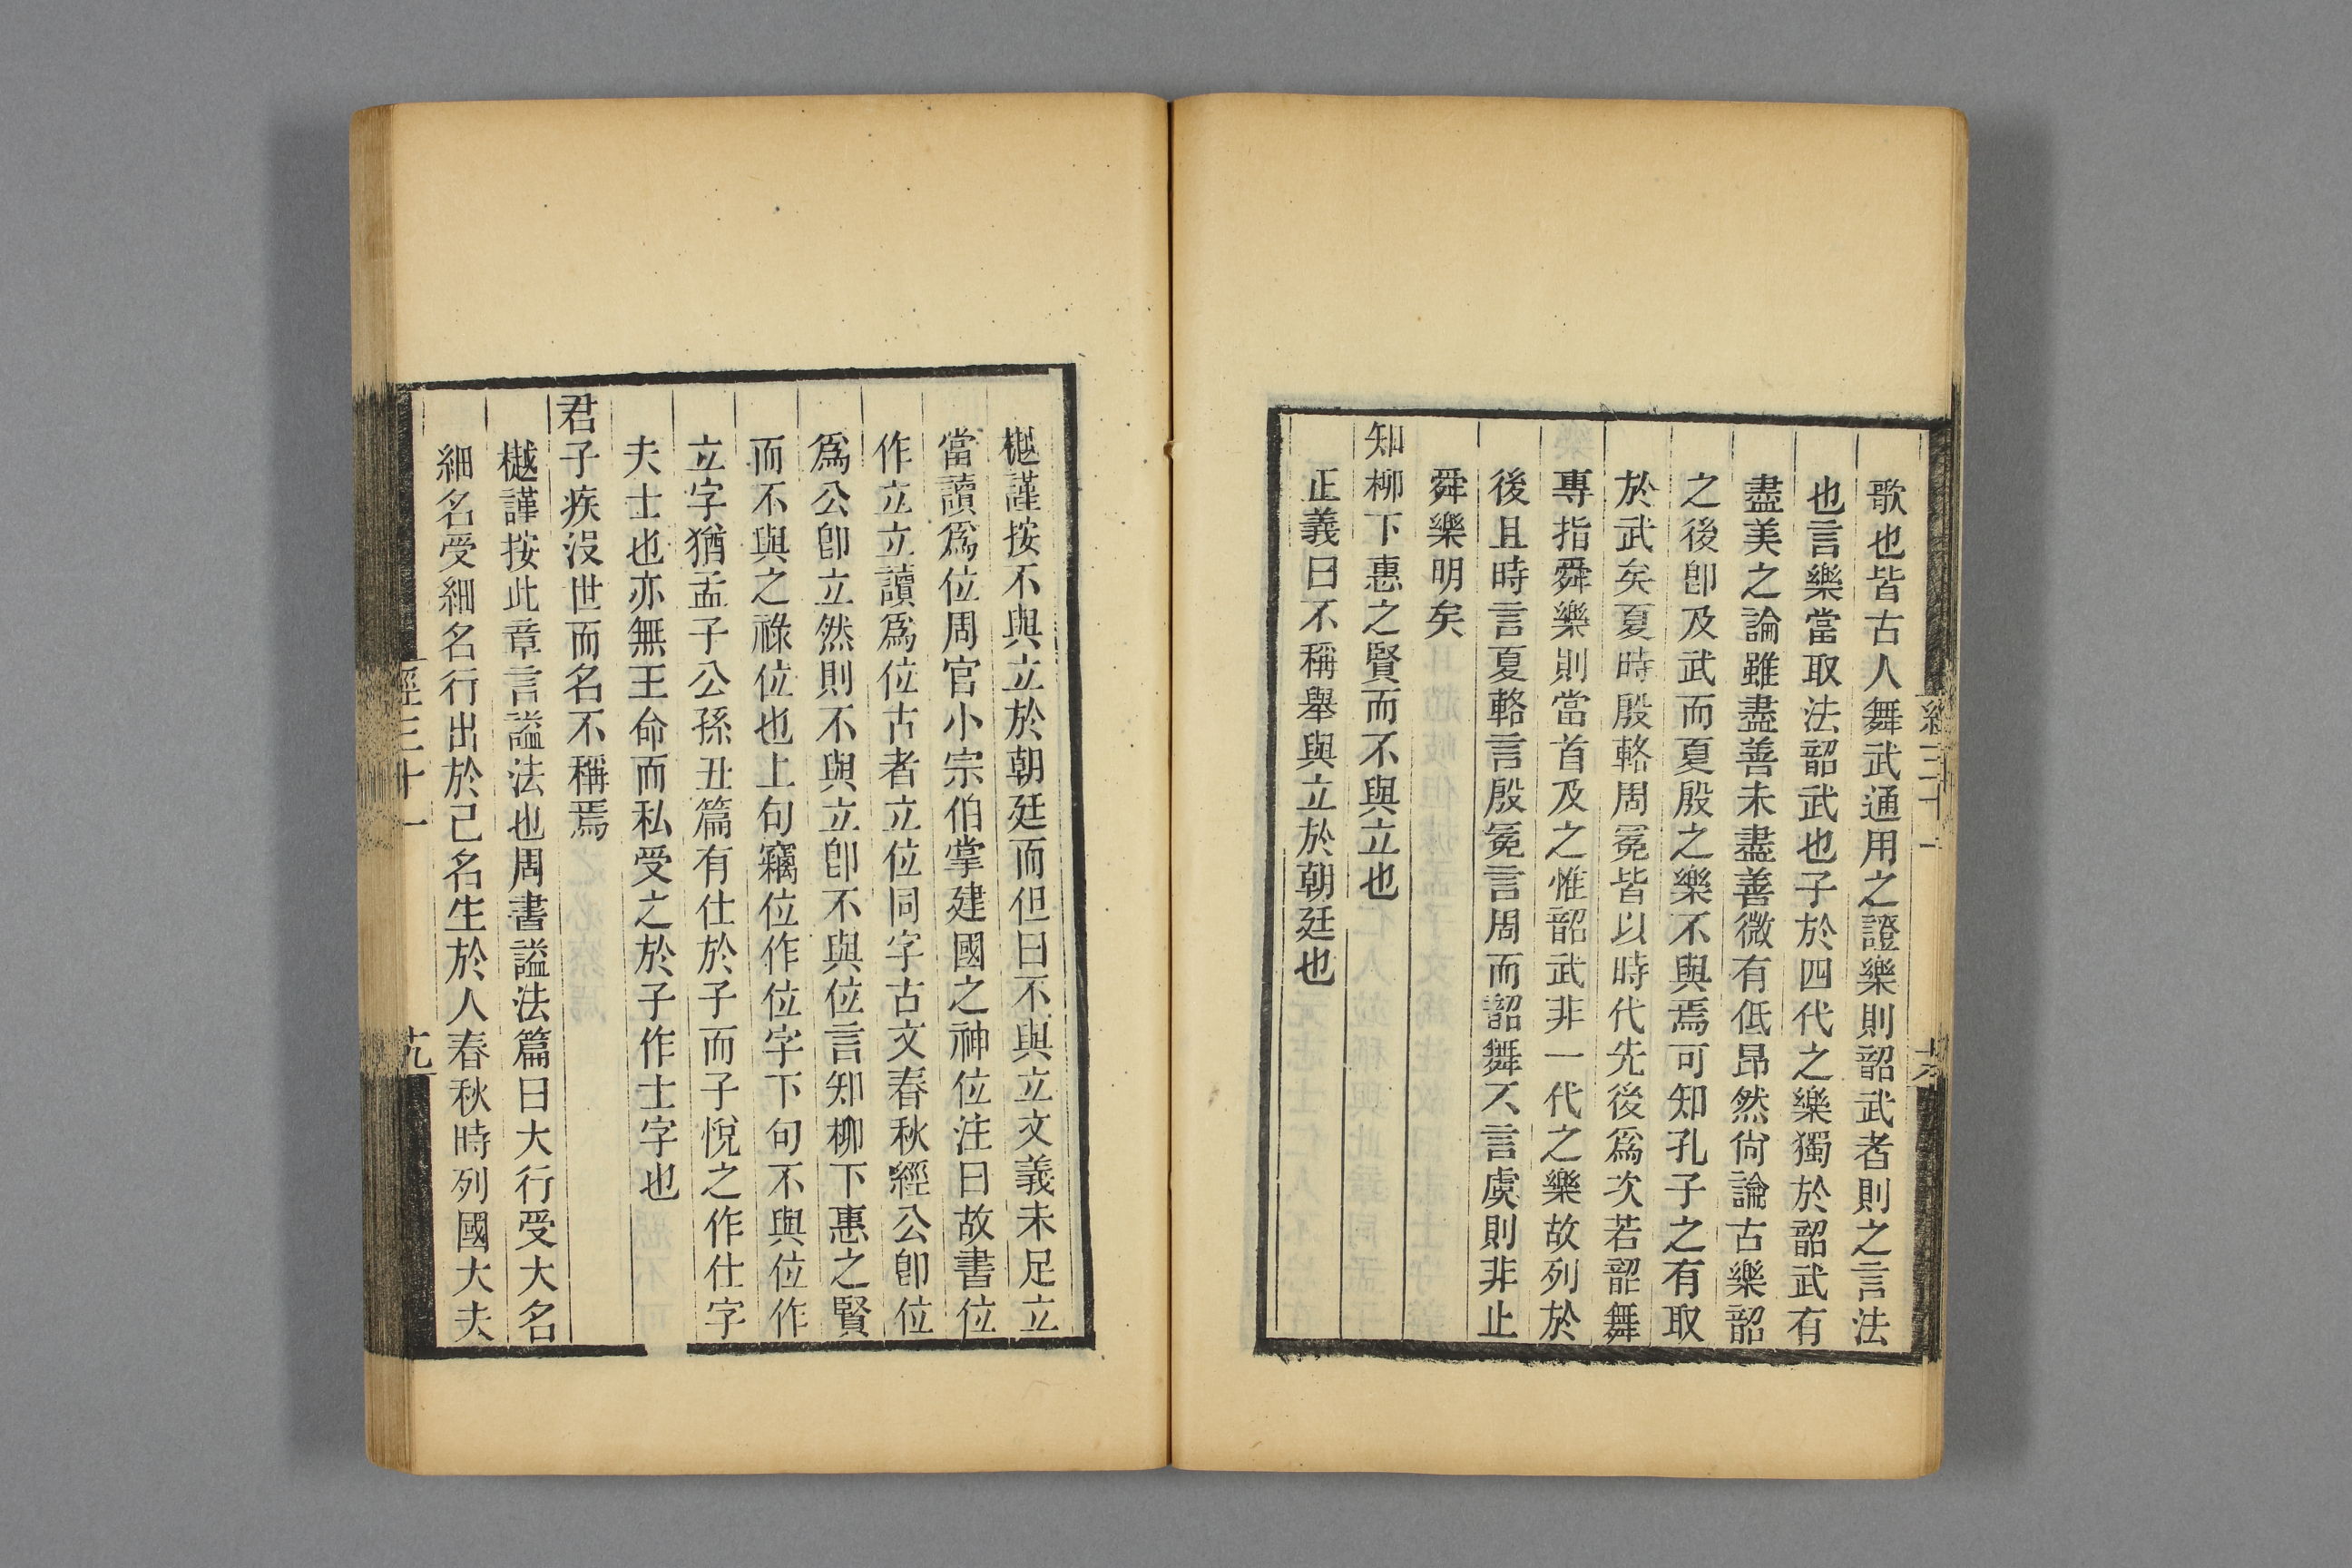 歌也皆古人舞武通用之證樂則韶武者則之言法
也言樂當取法韶武也子於四代之樂獨於韶武有
盡美之論雖盡善未盡善微有低昂然尙論古樂韶
之後卽及武而夏殷之樂不與焉可知孔子之有取
於武矣夏時殷輅周冕皆以時代先後爲次若韶舞
專指舜樂則當首及之惟韶武非一代之樂故列於
後且時言夏輅言殷冕言周而韶舞不言虞則非止
舜樂明矣
知柳下惠之賢而不與立也
正義曰不稱舉與立於朝廷也
樾謹按不與立於朝廷而但曰不與立文義未足立
當讀爲位周官小宗伯掌建國之神位注曰故書位
作立立讀爲位古者立位同字古文春秋經公卽位
爲公卽立然則不與立卽不與位言知柳下惠之賢
而不與之祿位也上句竊位作位字下句不與位作
立字猶孟子公孫丑篇有仕於子而子悅之作仕字
夫士也亦無王命而私受之於子作士字也
君子疾沒世而名不稱焉
樾謹按此章言謚法也周書謚法篇曰大行受大名
細名受細名行出於己名生於人春秋時列國大夫
經三十一